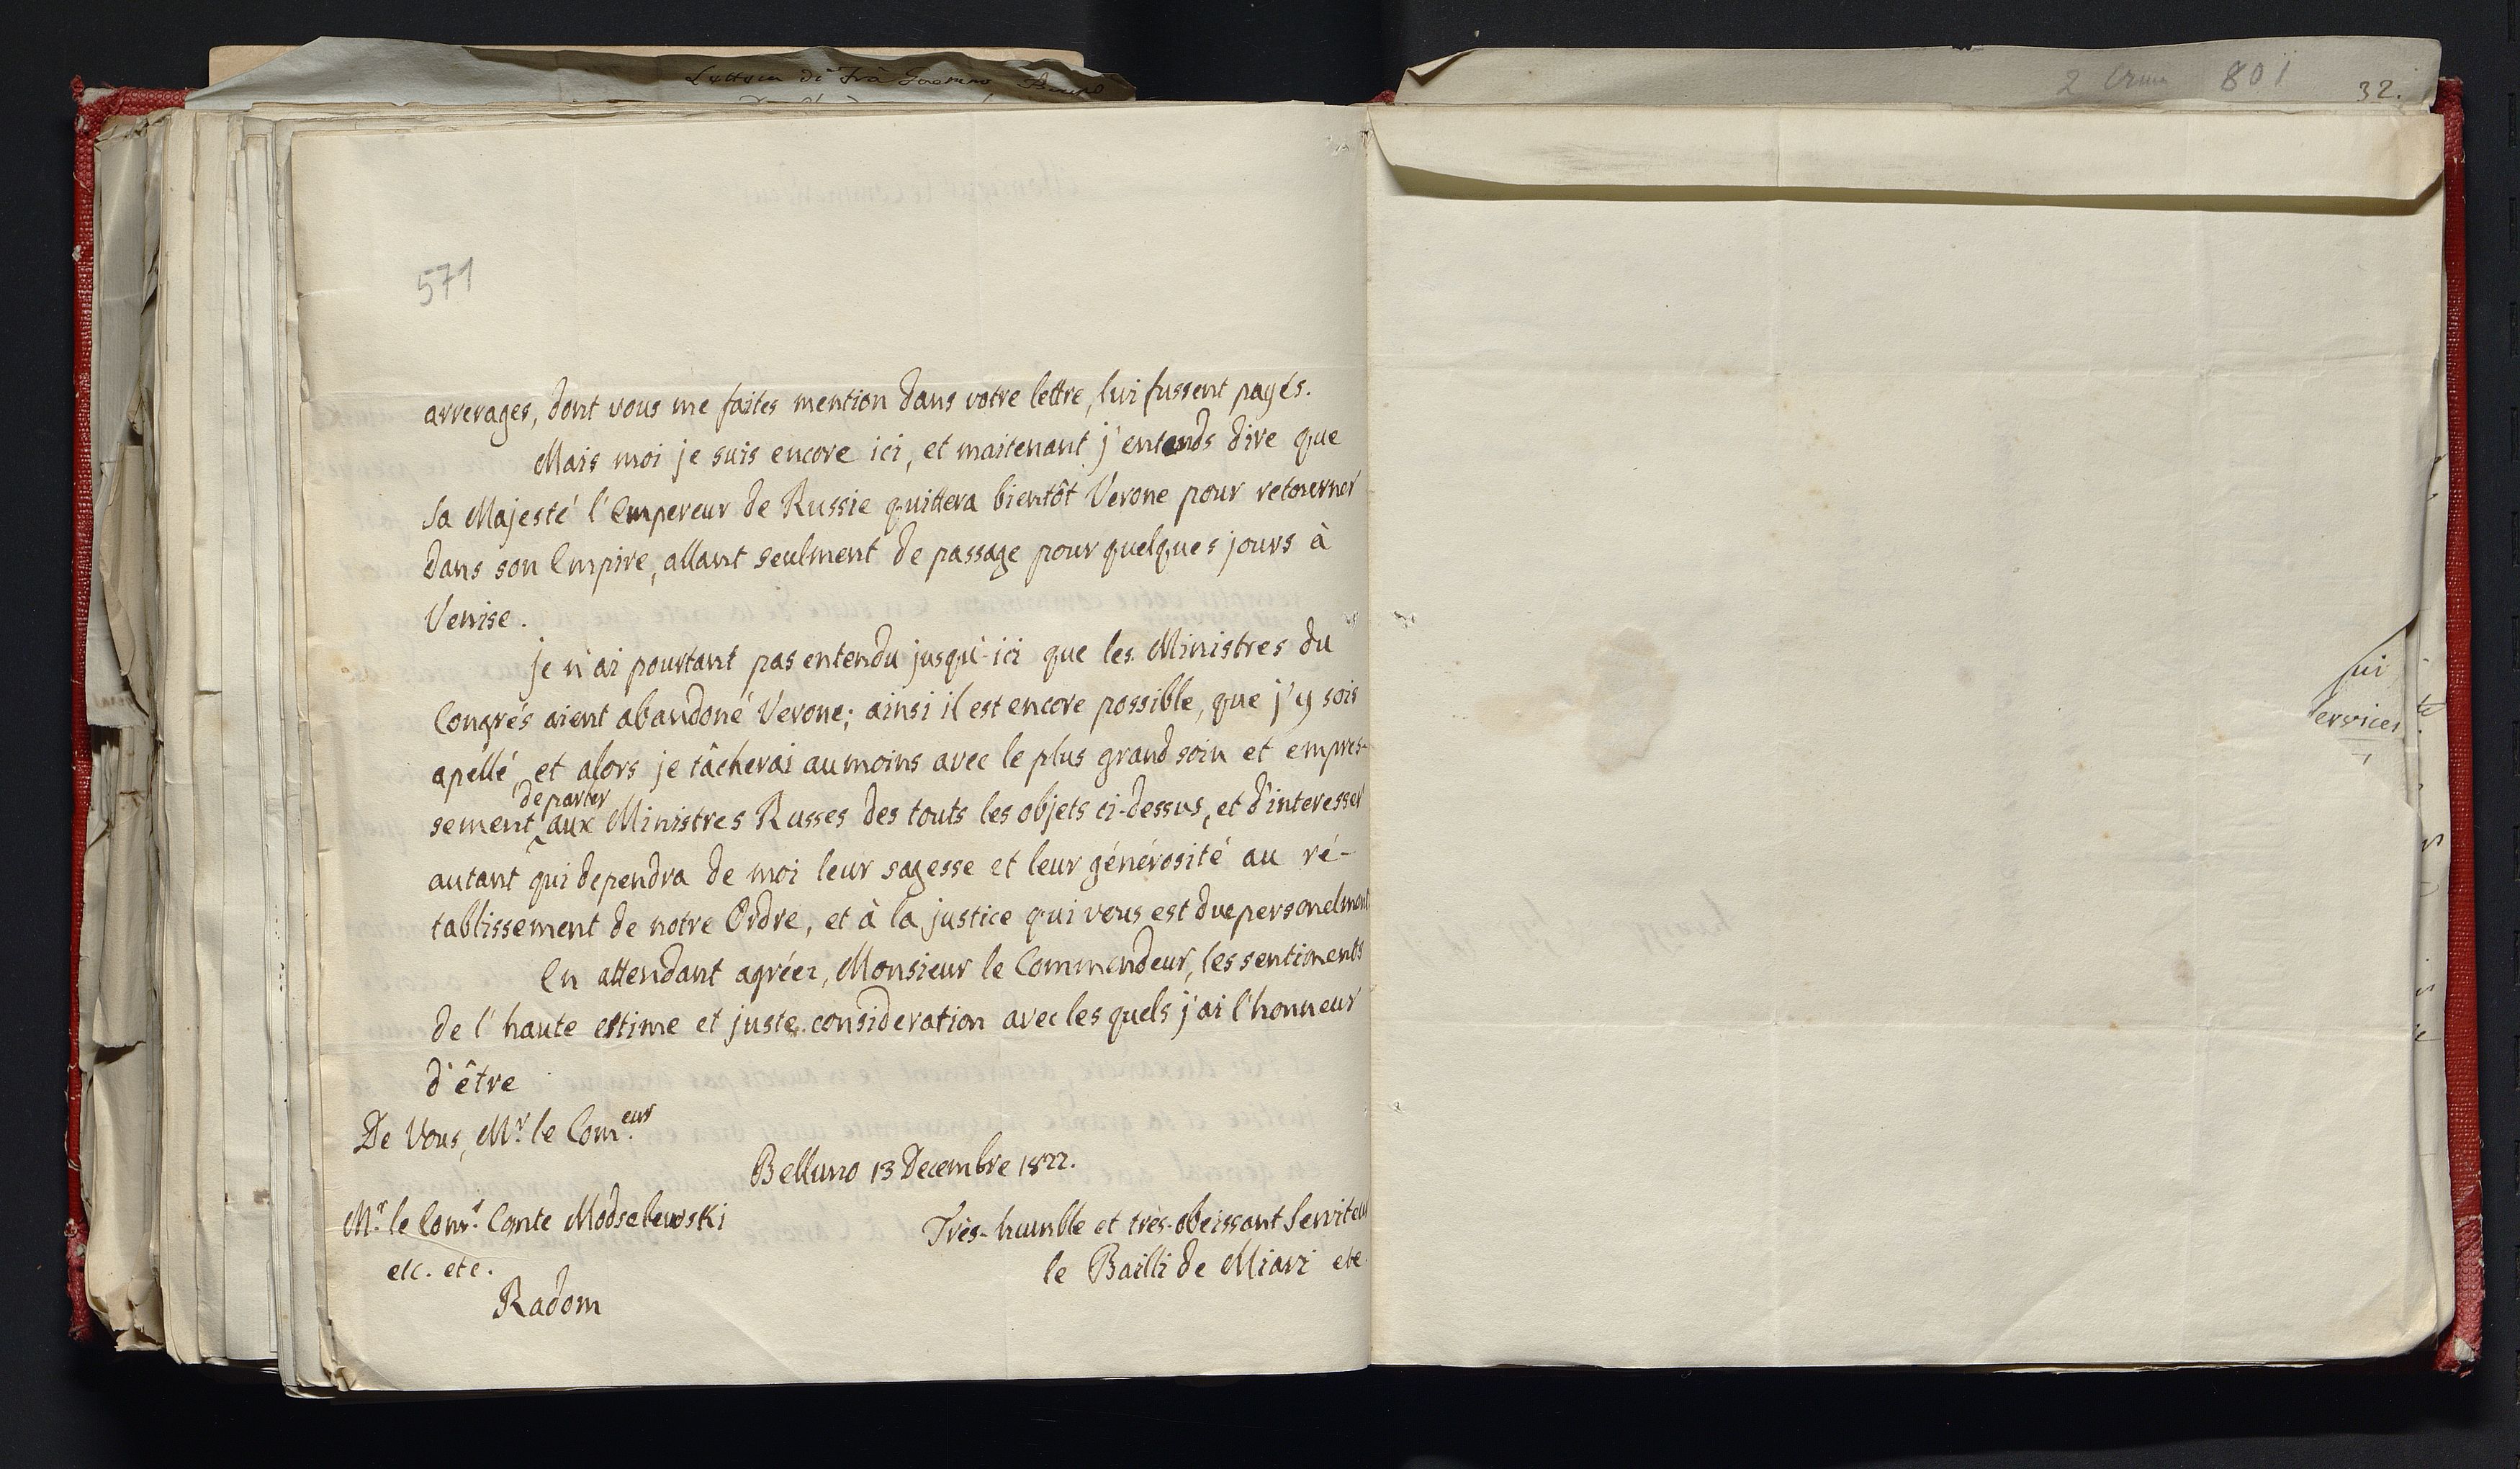 Lettera di Frà
2 801
32.
571
arrerages, dont vous me faites mention dans votre lettre, lui fussent payés.
Mais moi je suis encore ici, et maitenant j'entends dire que
Sa Majesté l'Empereur de Russie quittera bientôt Verone pour retourner
dans son Empire, allant seulment de passage pour quelques jours à
Venise.
je n'ai pourtant pas entendu jusqu'-ici que les Ministres du
Congrés aient abandoné Verone; ainsi il est encore possible, que j'y sois
apellé, et alors je tâcherai aumoins avec le plus grand soin et empres-
de parler
sement aux Ministres Russes des touts les objets ci-dessus, et d'interesser
autant qui dependra de moi leur sagesse et leur générosité au ré-
tablissement de notre Ordre, et à la justice qui vous est due personelment
En attendant agréez, Monsieur le Commendeur, les sentiments
de l'haute estime et juste consideration avec les quels j'ai l'honneur
d'être
De Vous, Mr. le Com.eur
Belluno 13 Decembre 1822.
Mr. le Comr. Comte Modselewski
Très-humble et très-obeissant Serviteur
etc. etc.
le Bailli de Miari etc.
Radom
services